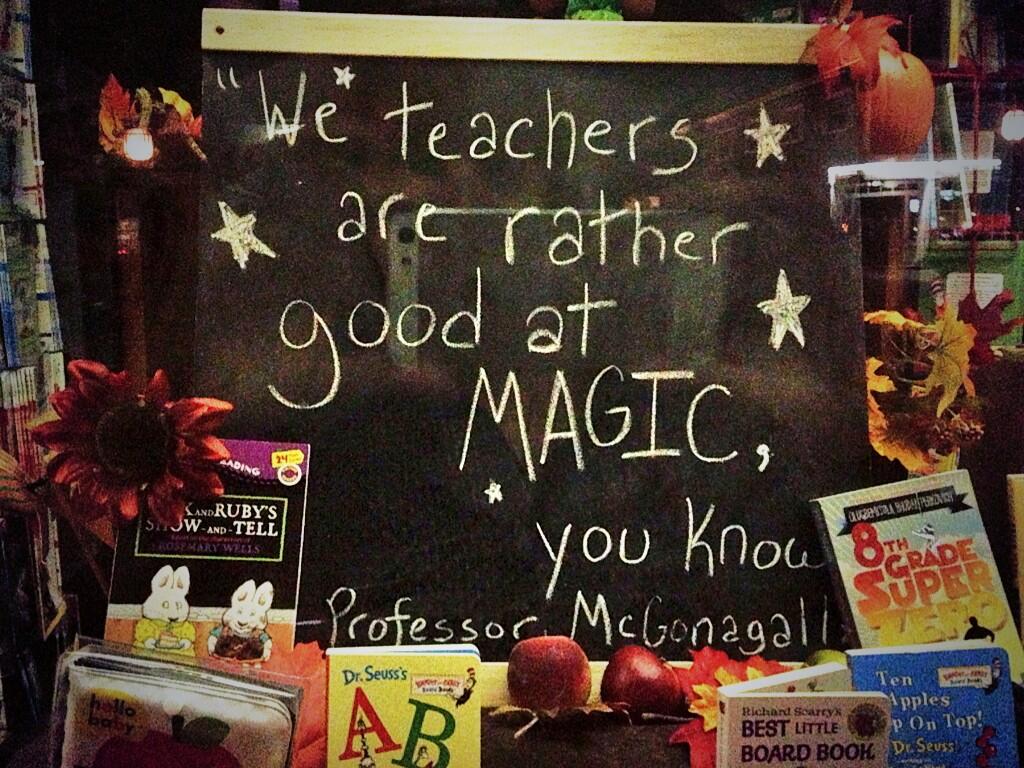 "We teachers
are rather
good at
MAGIC,
you know
- Professor McGonagall
24
AND RUBY'S
SHOW-AND-TELL
ROSEMARY WELLS
hello
baby
Dr. Seuss's
AB
8TH
GRADE
SUPER
ZERO
Richard Scarry's
BEST LITTLE
BOARD BOOK
Ten
Apples
Up On Top!
Dr. Seuss